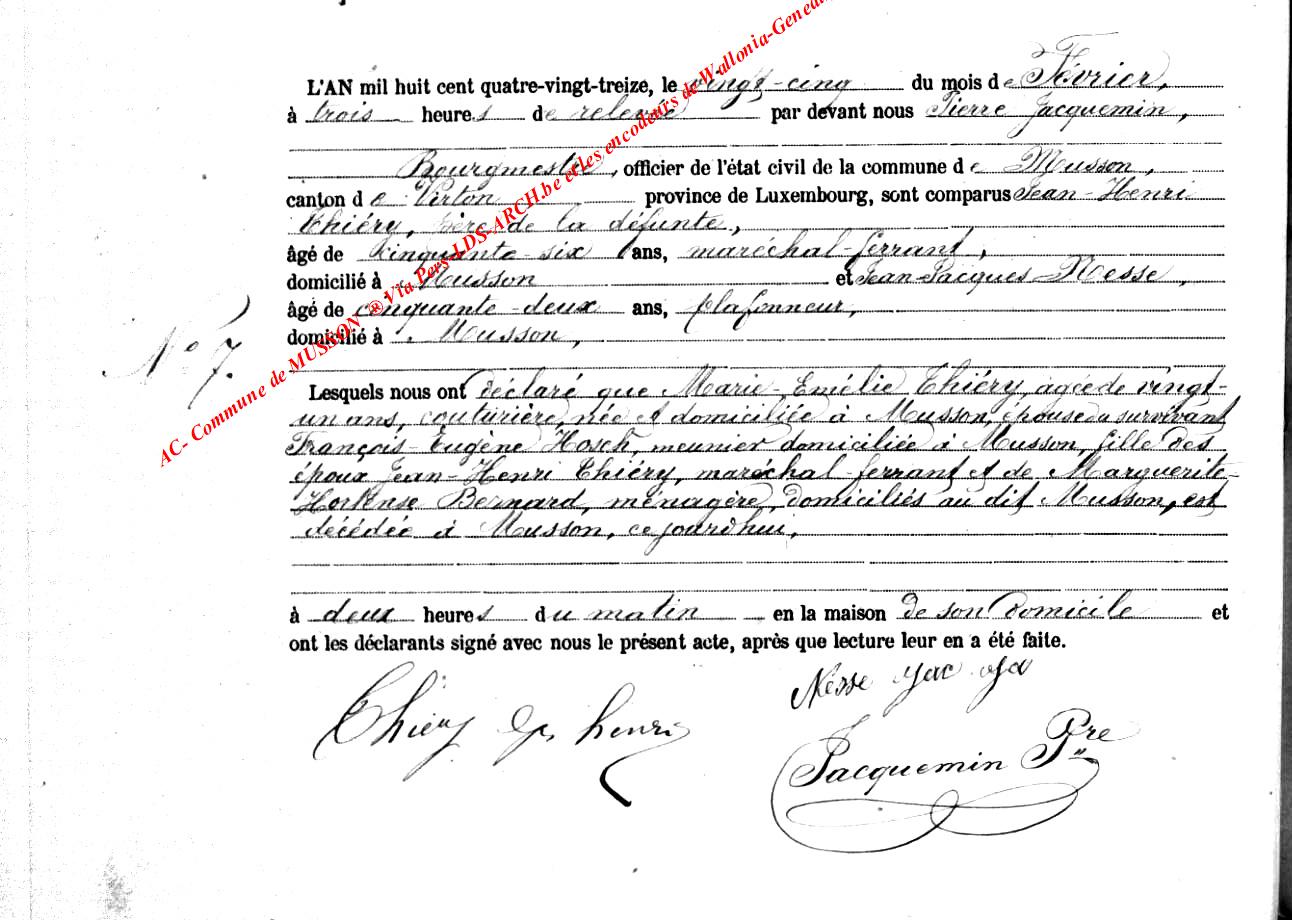 L'AN mil huit cent quatre-vingt-treize, le vingt-cinq du mois de Février,
à trois heures de relevée par devant nous Pierre Jacquemin,
Bourgmestre, officier de l'état civil de la commune de Musson,
canton de Virton province de Luxembourg, sont comparus Jean-Henri
Thiéry, père de la défunte,
âgé de cinquante-six ans, maréchal-ferrant,
domicilié à Musson et Jean-Jacques Nesse,
âgé de cinquante-deux ans, plafonneur,
domicilié à Musson,
No 7.
Lesquels nous ont déclaré que Marie-Emélie Thiéry, agée de vingt-
un ans, couturière, née et domiciliée à Musson, épouse du survivant
François-Eugène Hosch, meunier domiciliée à Musson, fille des
époux Jean-Henri Thiéry, maréchal-ferrant et de Marguerite-
Hortense Bernard, ménagère, domiciliés au dit Musson, est
décédée à Musson, ce jourd'hui,
à deux heures du matin en la maison de son domicile et
ont les déclarants signé avec nous le présent acte, après que lecture leur en a été faite.
Thiéry henri
Nesse Jac
Jacquemin Pre
AC- Commune de MUSSON ® Via Pers-LDS-ARCH.be et les encodeurs de Wallonia-Geneal